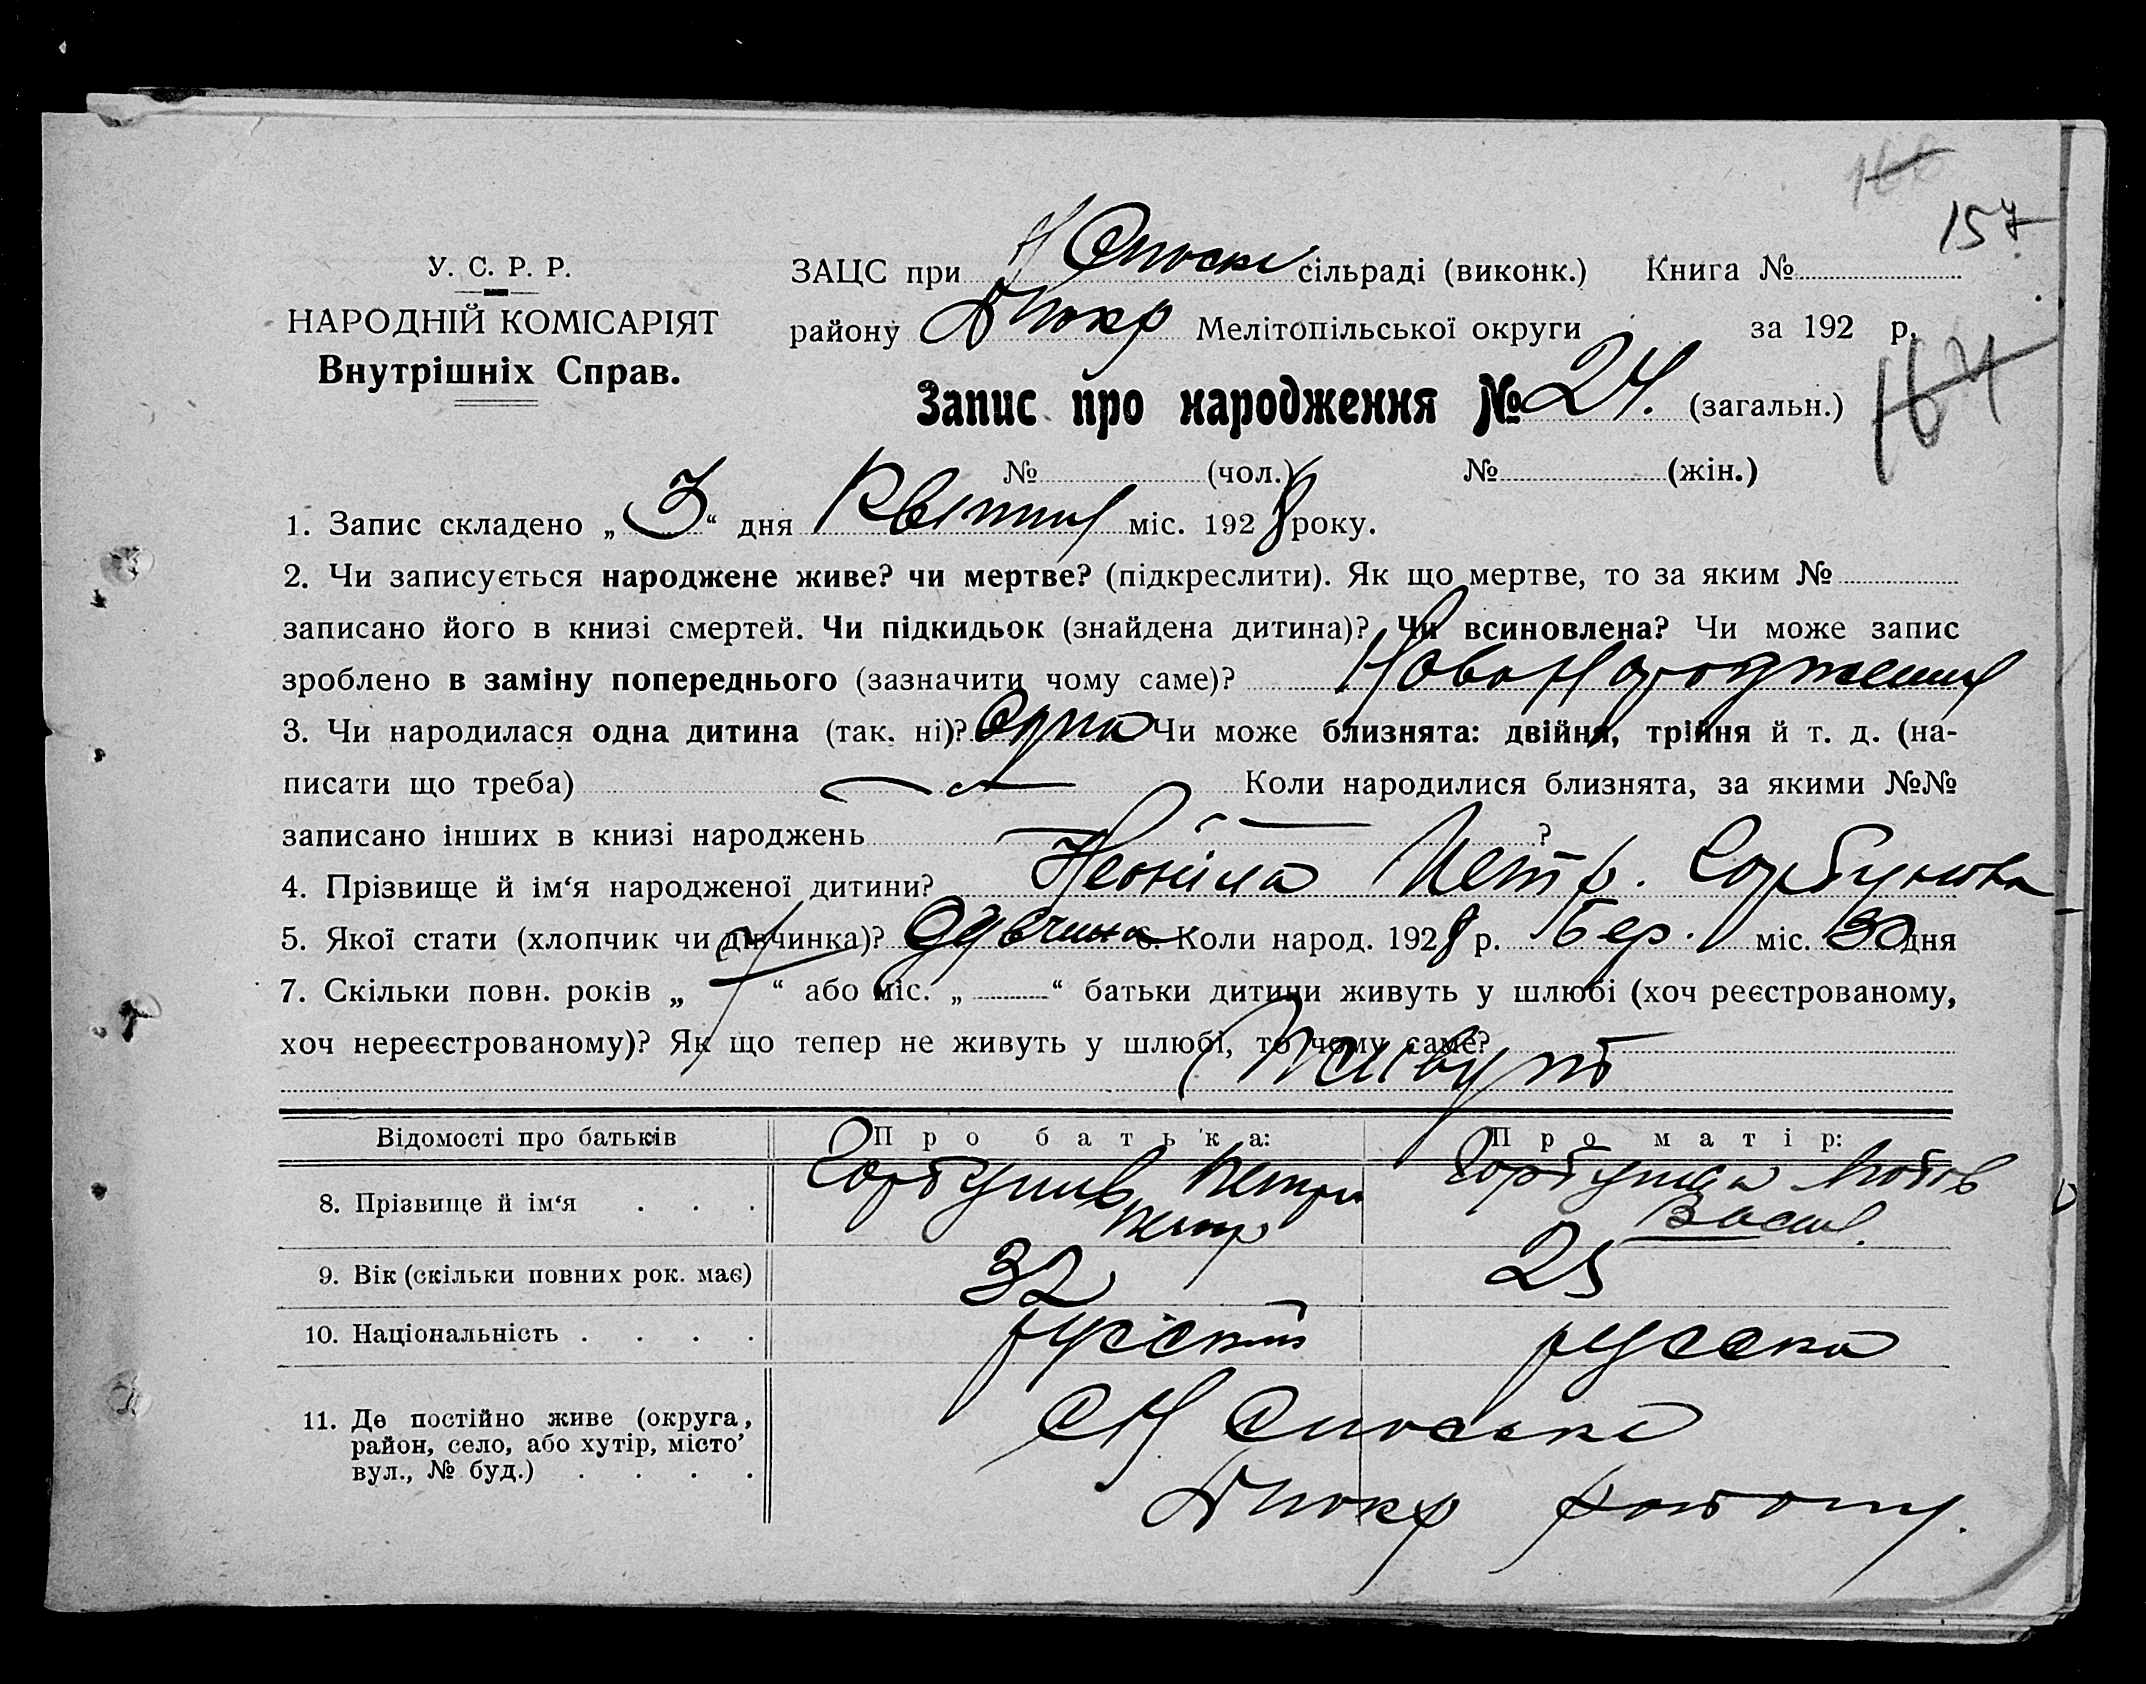 166
157
У. С. Р. Р.
НАРОДНІЙ КОМІСАРІЯТ
Внутрішніх Справ.
ЗАЦС при Н Спаске сільраді (виконк.) Книга №
району Мелітопільської округи за 192 р.
164
Запис про народження № 24. (загальн.)
№ (чол.) № (жін.)
1. Запис складено „ 3 “ дня Квітня міс. 1928 року.
2. Чи записується народжене живе? чи мертве? (підкреслити). Як що мертве, то за яким №
записано його в книзі смертей. Чи підкидьок (знайдена дитина)? Чи всиновлена? Чи може запис
зроблено в заміну попереднього (зазначити чому саме)? Новонародження
3. Чи народилася одна дитина (так. ні)? Одна Чи може близнята: двійня, трійня й т. д. (на-
писати що треба) — Коли народилися близнята, за якими №№
записано інших в книзі народжень — ?
4. Прізвище й ім‘я народженої дитини? Неоніла Петр. Горбунова
5. Якої стати (хлопчик чи дівчинка)? Дівчина 6. Коли народ. 1928 р. Бер. міс. 30 дня
7. Скільки повн. років „ 7 “ або міс. „ “ батьки дитини живуть у шлюбі (хоч реєстрованому,
хоч нереєстрованому)? Як що тепер не живуть у шлюбі, то чому саме?
Живуть
Відомості про батьків Про батька: Про матір:
8. Прізвище й ім‘я . . . Горбунів Петро Петр Горбунова Любов Васил.
9. Вік (скільки повних рок. має) 32 25
10. Національність . . . . русский русска
11. Де постійно живе (округа,
район, село, або хутір, місто’
вул., № буд.) . . . .
с Н Спаське
району.